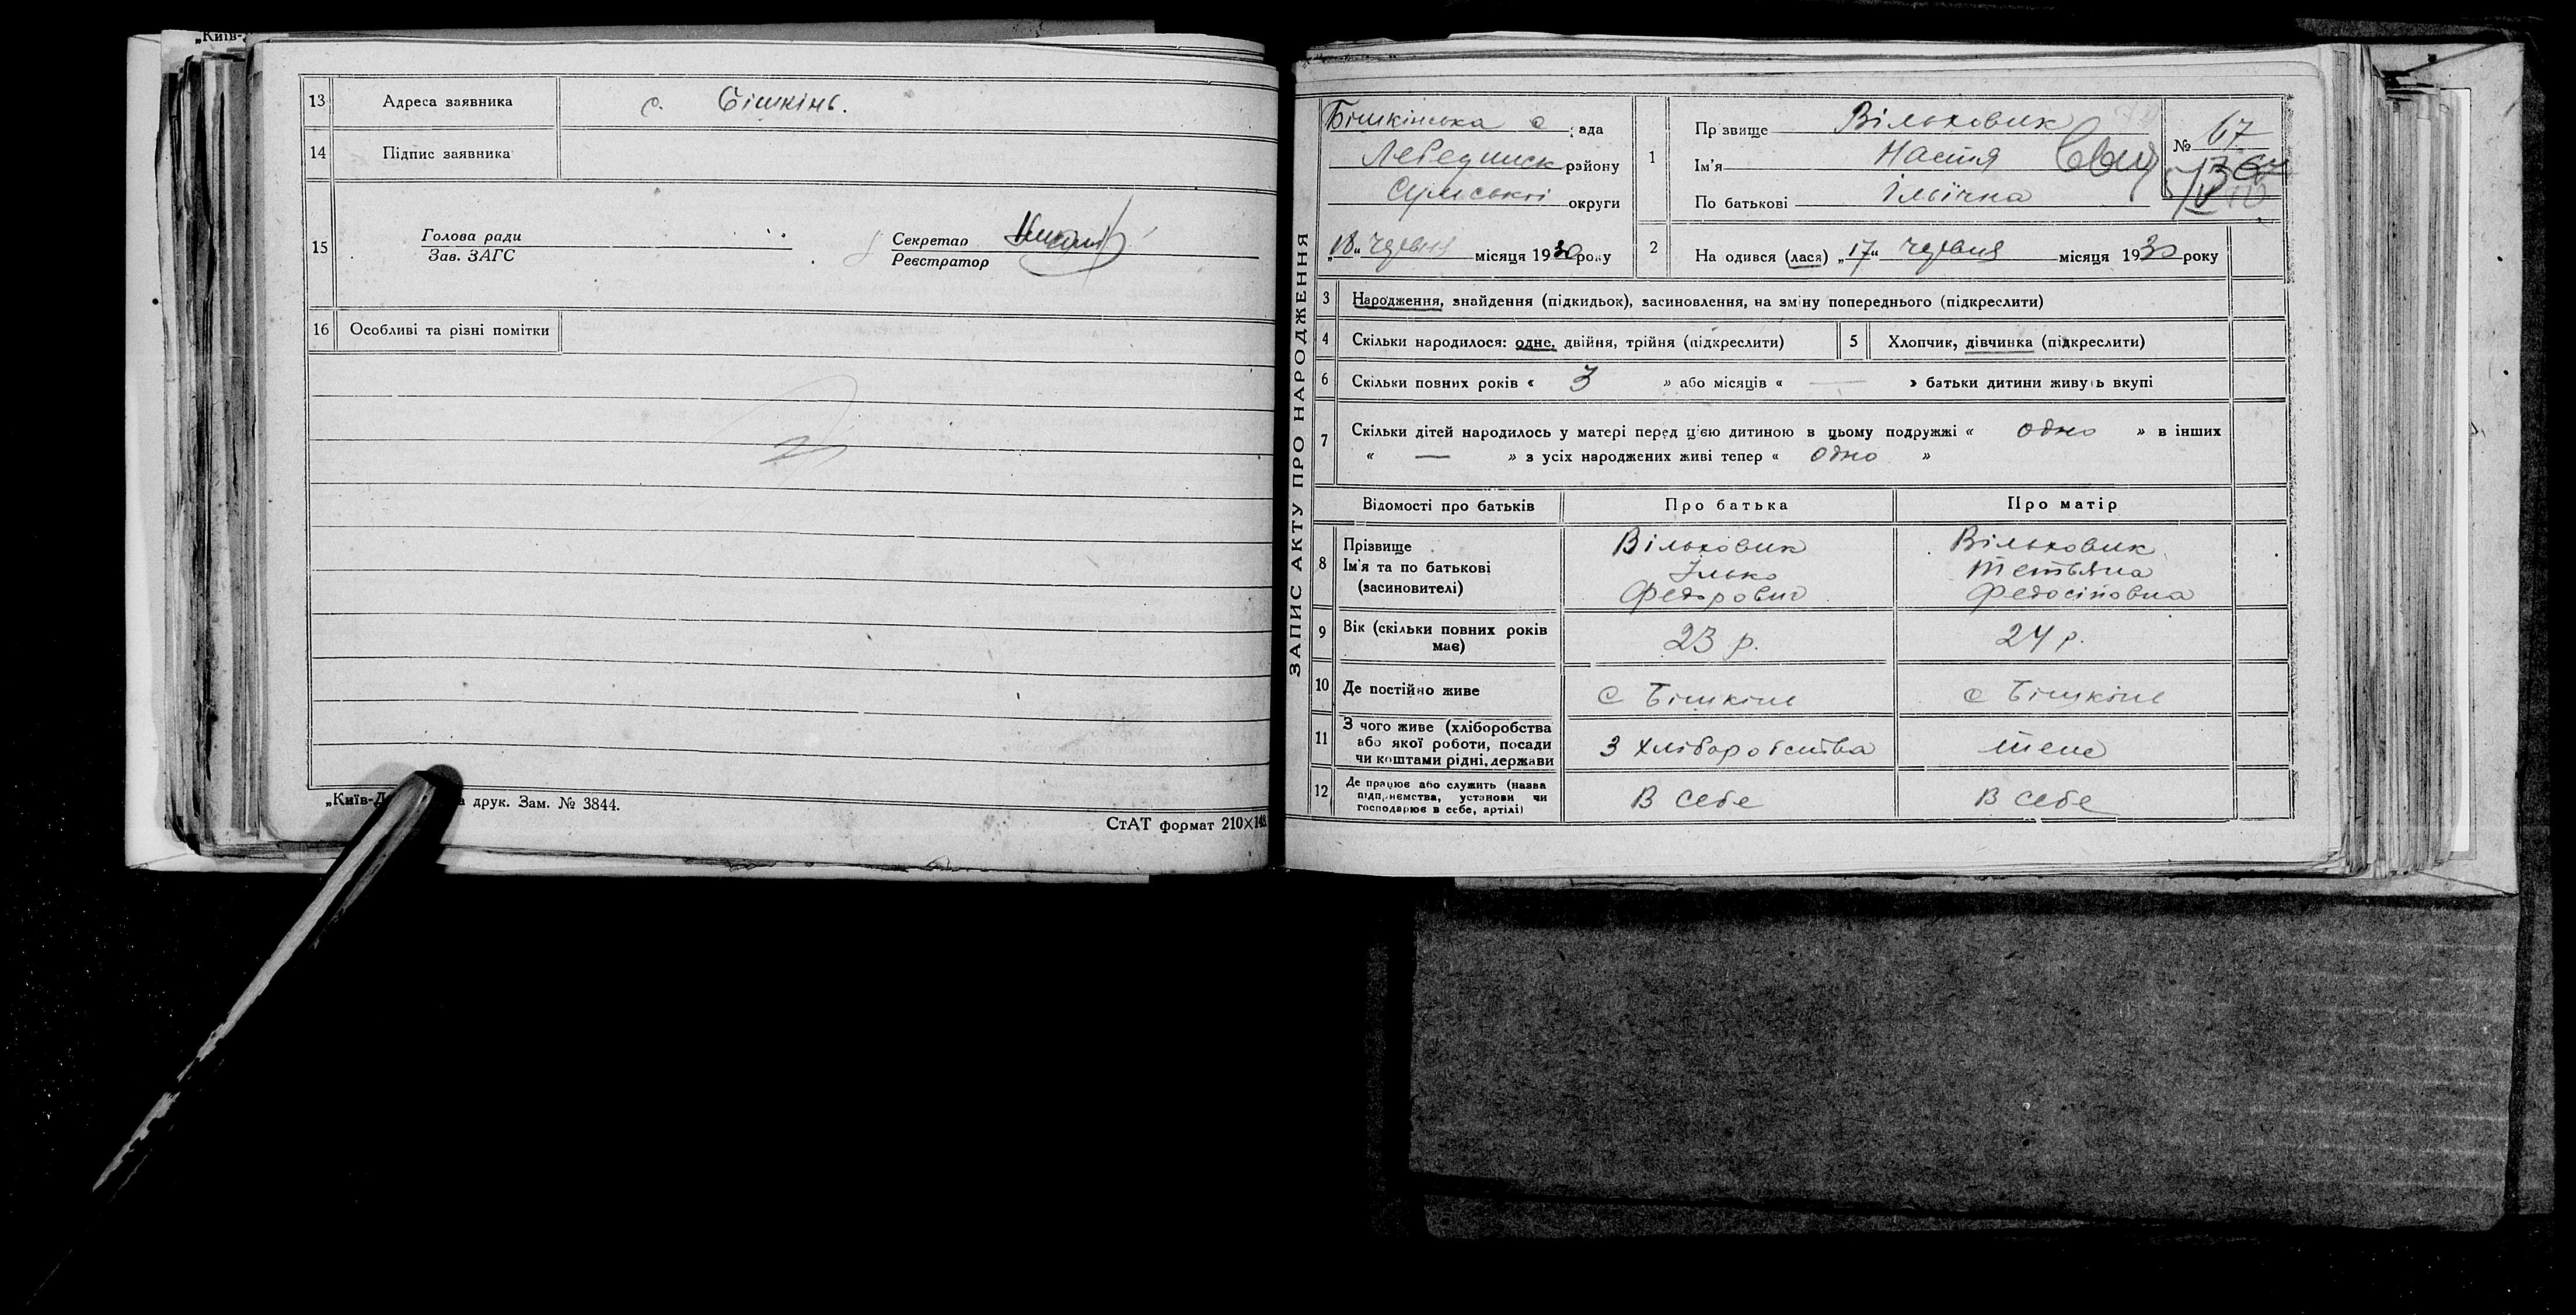 „Київ-
13 Адреса заявника с. Бішкінь.
14 Підпис заявника
15 Голова ради Секретар
Зав. ЗАГС Реєстратор
16 Особливі та різні помітки
„Київ-Д а друк. Зам. № 3844.
СтАТ формат 210×148
ЗАПИС АКТУ ПРО НАРОДЖЕННЯ
Бішкінська с ада
Лебединськ району
Сумської округи
„18“ червня місяця 1930 року
1 Пр звище Вільховик
Ім'я Настя
По батькові Ільїчна
№ 67
2 На одився (лася) „17“ червня місяця 1930 року
3 Народження, знайдення (підкидьок), засиновлення, на зміну попереднього (підкреслити)
4 Скільки народилося: одне, двійня, трійня (підкреслити) 5 Хлопчик, дівчинка (підкреслити)
6 Скільки повних років « 3 » або місяців « — » батьки дитини живуть вкупі
7 Скільки дітей народилось у матері перед цією дитиною в цьому подружжі « одно » в інших
« — » з усіх народжених живі тепер « одно »
Відомості про батьків Про батька Про матір
8 Прізвище Вільховик Вільховик
Ім'я та по батькові Ілько Тетьяна
(засиновителі) Федорович Федосіповна
9 Вік (скільки повних років має) 23 р. 24 р.
10 Де постійно живе с Бішкінь с Бішкінь
11 З чого живе (хліборобства
або якої роботи, посади З хліборобства теж
чи коштами рідні, держави
12 Де працює або служить (назва
підприємства, установи чи В себе В себе
господарює в себе, артілі)